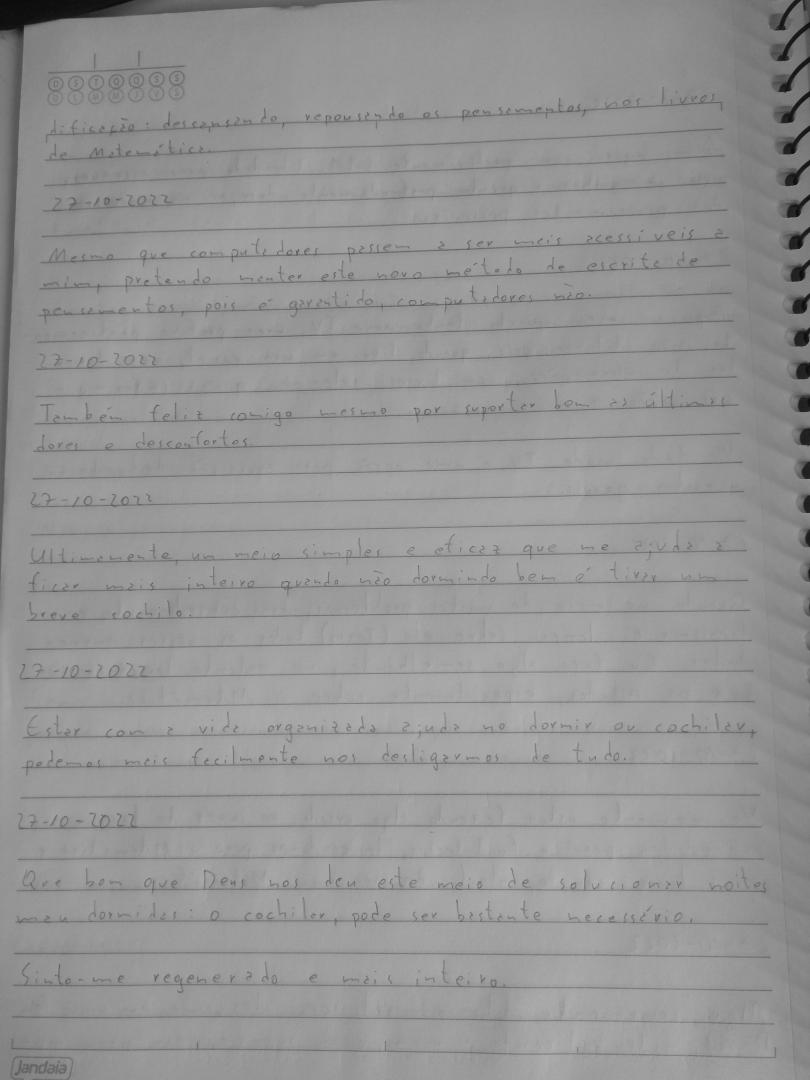 D S T Q Q S S
D L M M J V S
dificação: descansando, repousando os pensamentos, nos livros
de Matemática.
27-10-2022
Mesmo que computadores passem a ser mais acessíveis a
mim, pretendo manter este novo método de escrita de
pensamentos, pois é garantido, computadores não.
27-10-2022
Também feliz comigo mesmo por suportar bem as últimas
dores e desconfortos.
27-10-2022
Ultimamente, um meio simples e eficaz que me ajuda a
ficar mais inteiro quando não dormindo bem é tirar um
breve cochilo.
27-10-2022
Estar com a vida organizada ajuda no dormir ou cochilar,
podemos mais facilmente nos desligarmos de tudo.
27-10-2022
Que bom que Deus nos deu este meio de solucionar noites
mau dormidas: o cochilar, pode ser bastante necessário.
Sinto-me regenerado e mais inteiro.
Jandaia